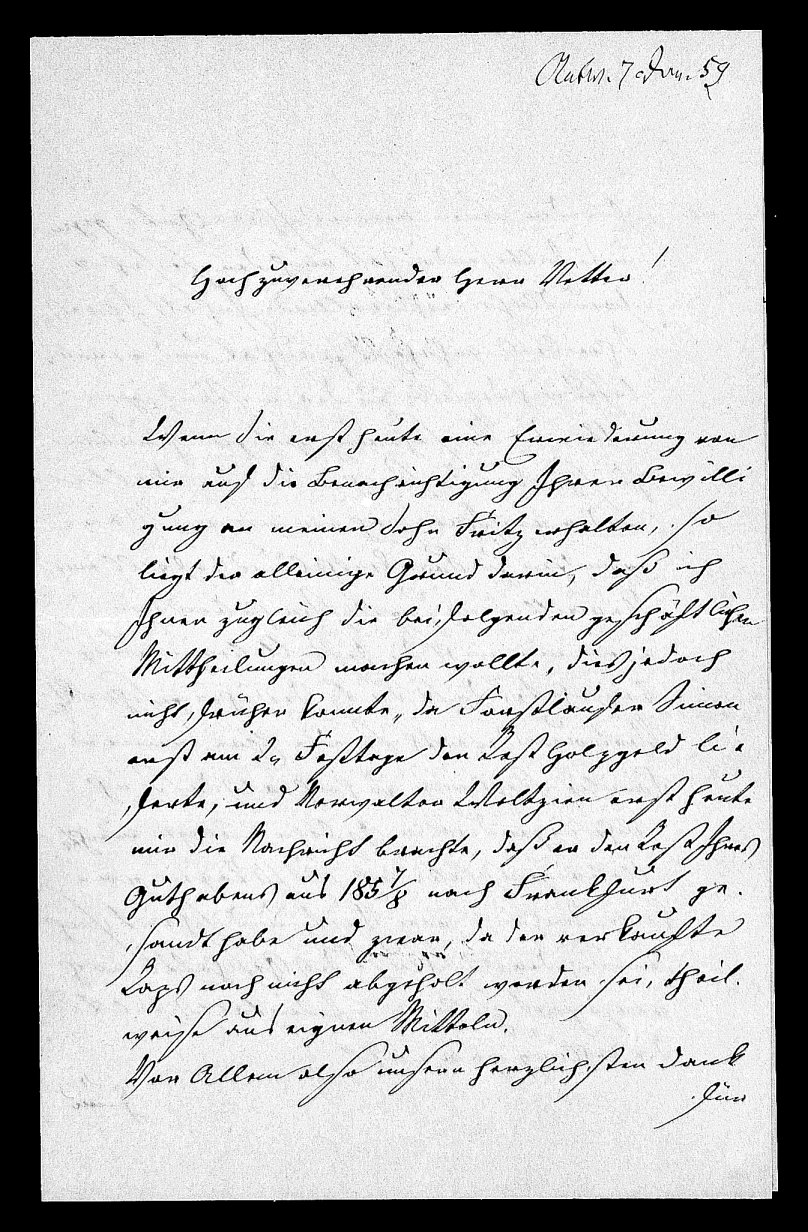 Antw. 7 Jan. 59
Hochzuverehrender Herr Vetter!
Wenn Sie erst heute eine Erwiederung von
mir auf die Benachrichtigung Ihrer Bewilli
gung an meinen Sohn Fritz erhalten, so
liegt der alleinige Grund darin, daß ich
Ihnen zugleich die beifolgenden geschäftlichen
Mittheilungen machen wollte, dies jedoch
nicht früher konnte, da Forstläufer Simon
erst am 2n Festtage den Rest Holzgeld lie
ferte, und Verwalter Woltzien erst heute
mir die Nachricht brachte, daß er den Rest Ihres
Guthabens aus 1857/8 nach Frankfurt ge-
sandt habe und zwar, da der verkaufte
Raps noch nicht abgeholt worden sei, theil-
weise aus eignen Mitteln.
Vor Allem also unsern herzlichsten Dank
für